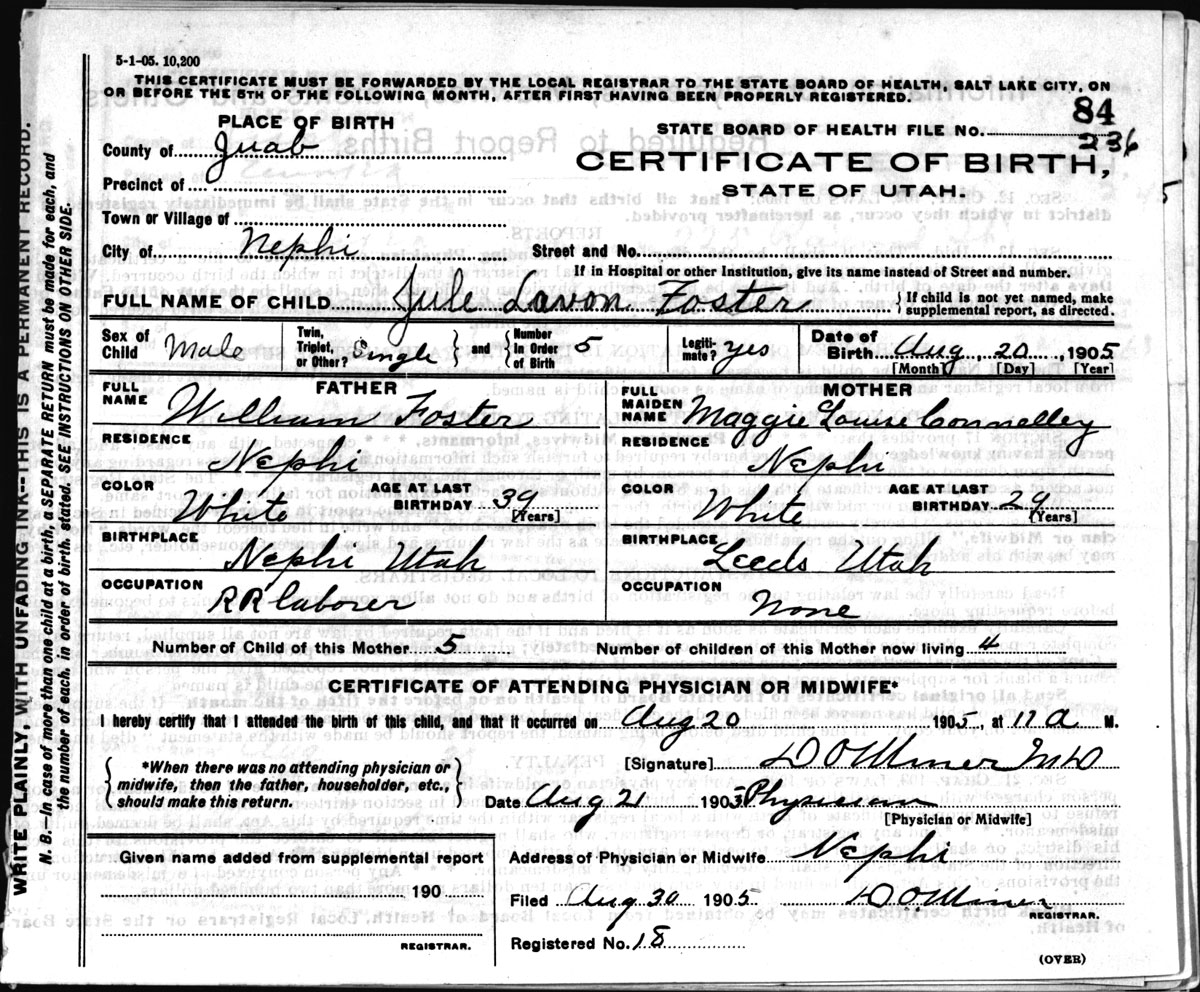 5-1-05. 10,200
THIS CERTIFICATE MUST BE FORWARDED BY THE LOCAL REGISTRAR TO THE STATE BOARD OF HEALTH, SALT LAKE CITY, ON
OR BEFORE THE 5TH OF THE FOLLOWING MONTH, AFTER FIRST HAVING BEEN PROPERLY REGISTERED.
84
PLACE OF BIRTH
STATE BOARD OF HEALTH FILE NO.
236
County of Juab
CERTIFICATE OF BIRTH,
Precinct of
STATE OF UTAH.
Town or Village of
City of Nephi
Street and No.
If in Hospital or other Institution, give its name instead of Street and number.
FULL NAME OF CHILD Jule Lavon Foster
{If child is not yet named, make supplemental report, as directed.
Sex of Child Male
Twin, Triplet, or Other? Single } and { Number in Order of Birth 5
Legitimate? yes
Date of Birth Aug, 20, 1905
[Month] [Day] [Year]
FATHER
MOTHER
FULL NAME William Foster
FULL MAIDEN NAME Maggie Louise Connelley
RESIDENCE Nephi
RESIDENCE Nephi
COLOR White
AGE AT LAST BIRTHDAY 39 [Years]
COLOR White
AGE AT LAST BIRTHDAY 29 [Years]
BIRTHPLACE Nephi Utah
BIRTHPLACE Leeds Utah
OCCUPATION RR laborer
OCCUPATION None
Number of Child of this Mother 5
Number of children of this Mother now living 4
CERTIFICATE OF ATTENDING PHYSICIAN OR MIDWIFE*
I hereby certify that I attended the birth of this child, and that it occurred on Aug 20 1905, at 11 A M.
{ *When there was no attending physician or midwife, then the father, householder, etc., should make this return. }
[Signature] D O Miner MD
Date Aug 21 1905 Physician
[Physician or Midwife]
Given name added from supplemental report
190
REGISTRAR.
Address of Physician or Midwife Nephi
Filed Aug 30 1905 D. O. Miner
REGISTRAR.
Registered No. 18
(OVER)
WRITE PLAINLY, WITH UNFADING INK--THIS IS A PERMANENT RECORD.
N. B.—In case of more than one child at a birth, a SEPARATE RETURN must be made for each, and
the number of each, in order of birth, stated. SEE INSTRUCTIONS ON OTHER SIDE.